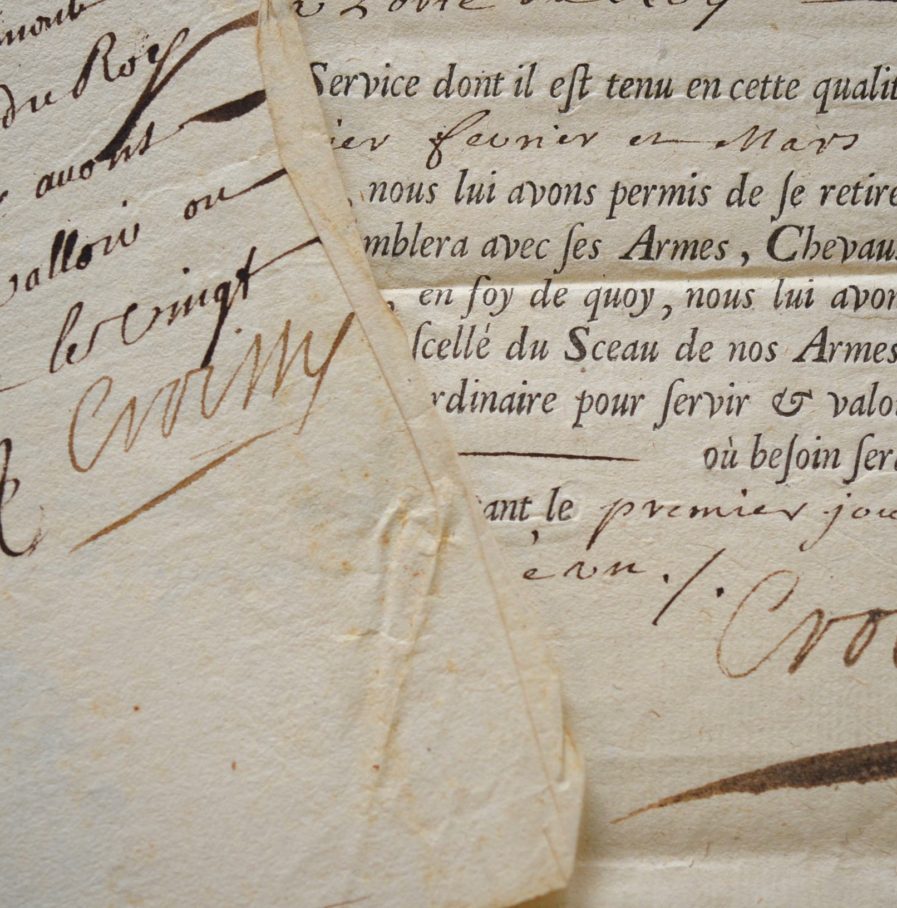 du Roy
avont
valloir ou
le vingt
Croissy
Service dont il eſt tenu en cette qualit
ier fevrier et Mars
nous lui avons permis de ſe retire
mblera avec ſes Armes, Chevau
, en foy de quoy, nous lui avon
ſcellé du Sceau de nos Armes
rdinaire pour ſervir & valo
où beſoin ſera
ant le premier jou
Croi